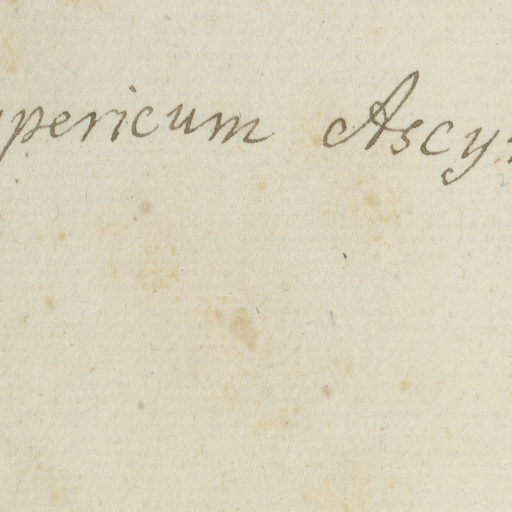 ypericum Ascy